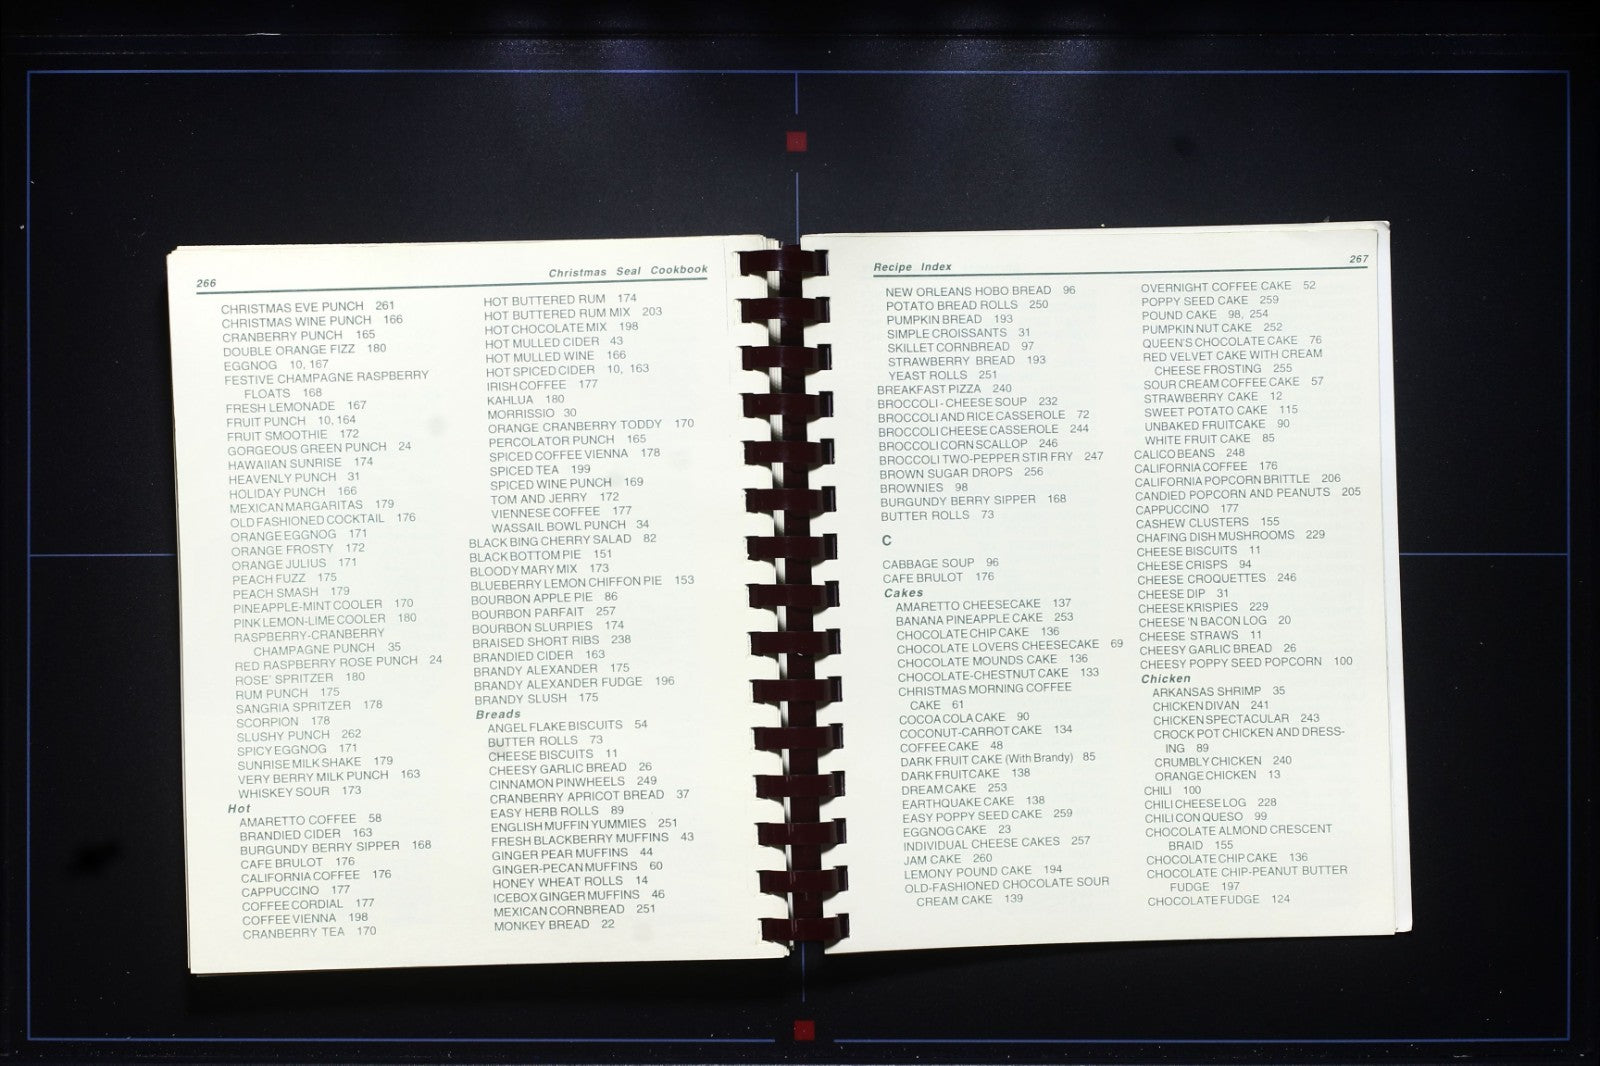 266
Christmas Seal Cookbook
CHRISTMAS EVE PUNCH 261
CHRISTMAS WINE PUNCH 166
CRANBERRY PUNCH 165
DOUBLE ORANGE FIZZ 180
EGGNOG 10, 167
FESTIVE CHAMPAGNE RASPBERRY
FLOATS 168
FRESH LEMONADE 167
FRUIT PUNCH 10, 164
FRUIT SMOOTHIE 172
GORGEOUS GREEN PUNCH 24
HAWAIIAN SUNRISE 174
HEAVENLY PUNCH 31
HOLIDAY PUNCH 166
MEXICAN MARGARITAS 179
OLD FASHIONED COCKTAIL 176
ORANGE EGGNOG 171
ORANGE FROSTY 172
ORANGE JULIUS 171
PEACH FUZZ 175
PEACH SMASH 179
PINEAPPLE-MINT COOLER 170
PINK LEMON-LIME COOLER 180
RASPBERRY-CRANBERRY
CHAMPAGNE PUNCH 35
RED RASPBERRY ROSE PUNCH 24
ROSE' SPRITZER 180
RUM PUNCH 175
SANGRIA SPRITZER 178
SCORPION 178
SLUSHY PUNCH 262
SPICY EGGNOG 171
SUNRISE MILK SHAKE 179
VERY BERRY MILK PUNCH 163
WHISKEY SOUR 173
Hot
AMARETTO COFFEE 58
BRANDIED CIDER 163
BURGUNDY BERRY SIPPER 168
CAFE BRULOT 176
CALIFORNIA COFFEE 176
CAPPUCCINO 177
COFFEE CORDIAL 177
COFFEE VIENNA 198
CRANBERRY TEA 170
HOT BUTTERED RUM 174
HOT BUTTERED RUM MIX 203
HOT CHOCOLATE MIX 198
HOT MULLED CIDER 43
HOT MULLED WINE 166
HOT SPICED CIDER 10, 163
IRISH COFFEE 177
KAHLUA 180
MORRISSIO 30
ORANGE CRANBERRY TODDY 170
PERCOLATOR PUNCH 165
SPICED COFFEE VIENNA 178
SPICED TEA 199
SPICED WINE PUNCH 169
TOM AND JERRY 172
VIENNESE COFFEE 177
WASSAIL BOWL PUNCH 34
BLACK BING CHERRY SALAD 82
BLACK BOTTOM PIE 151
BLOODY MARY MIX 173
BLUEBERRY LEMON CHIFFON PIE 153
BOURBON APPLE PIE 86
BOURBON PARFAIT 257
BOURBON SLURPIES 174
BRAISED SHORT RIBS 238
BRANDIED CIDER 163
BRANDY ALEXANDER 175
BRANDY ALEXANDER FUDGE 196
BRANDY SLUSH 175
Breads
ANGEL FLAKE BISCUITS 54
BUTTER ROLLS 73
CHEESE BISCUITS 11
CHEESY GARLIC BREAD 26
CINNAMON PINWHEELS 249
CRANBERRY APRICOT BREAD 37
EASY HERB ROLLS 89
ENGLISH MUFFIN YUMMIES 251
FRESH BLACKBERRY MUFFINS 43
GINGER PEAR MUFFINS 44
GINGER-PECAN MUFFINS 60
HONEY WHEAT ROLLS 14
ICEBOX GINGER MUFFINS 46
MEXICAN CORNBREAD 251
MONKEY BREAD 22
Recipe Index
267
NEW ORLEANS HOBO BREAD 96
POTATO BREAD ROLLS 250
PUMPKIN BREAD 193
SIMPLE CROISSANTS 31
SKILLET CORNBREAD 97
STRAWBERRY BREAD 193
YEAST ROLLS 251
BREAKFAST PIZZA 240
BROCCOLI - CHEESE SOUP 232
BROCCOLI AND RICE CASSEROLE 72
BROCCOLI CHEESE CASSEROLE 244
BROCCOLI CORN SCALLOP 246
BROCCOLI TWO-PEPPER STIR FRY 247
BROWN SUGAR DROPS 256
BROWNIES 98
BURGUNDY BERRY SIPPER 168
BUTTER ROLLS 73
C
CABBAGE SOUP 96
CAFE BRULOT 176
Cakes
AMARETTO CHEESECAKE 137
BANANA PINEAPPLE CAKE 253
CHOCOLATE CHIP CAKE 136
CHOCOLATE LOVERS CHEESECAKE 69
CHOCOLATE MOUNDS CAKE 136
CHOCOLATE-CHESTNUT CAKE 133
CHRISTMAS MORNING COFFEE
CAKE 61
COCOA COLA CAKE 90
COCONUT-CARROT CAKE 134
COFFEE CAKE 48
DARK FRUIT CAKE (With Brandy) 85
DARK FRUITCAKE 138
DREAM CAKE 253
EARTHQUAKE CAKE 138
EASY POPPY SEED CAKE 259
EGGNOG CAKE 23
INDIVIDUAL CHEESE CAKES 257
JAM CAKE 260
LEMONY POUND CAKE 194
OLD-FASHIONED CHOCOLATE SOUR
CREAM CAKE 139
OVERNIGHT COFFEE CAKE 52
POPPY SEED CAKE 259
POUND CAKE 98, 254
PUMPKIN NUT CAKE 252
QUEEN'S CHOCOLATE CAKE 76
RED VELVET CAKE WITH CREAM
CHEESE FROSTING 255
SOUR CREAM COFFEE CAKE 57
STRAWBERRY CAKE 12
SWEET POTATO CAKE 115
UNBAKED FRUITCAKE 90
WHITE FRUIT CAKE 85
CALICO BEANS 248
CALIFORNIA COFFEE 176
CALIFORNIA POPCORN BRITTLE 206
CANDIED POPCORN AND PEANUTS 205
CAPPUCCINO 177
CASHEW CLUSTERS 155
CHAFING DISH MUSHROOMS 229
CHEESE BISCUITS 11
CHEESE CRISPS 94
CHEESE CROQUETTES 246
CHEESE DIP 31
CHEESE KRISPIES 229
CHEESE 'N BACON LOG 20
CHEESE STRAWS 11
CHEESY GARLIC BREAD 26
CHEESY POPPY SEED POPCORN 100
Chicken
ARKANSAS SHRIMP 35
CHICKEN DIVAN 241
CHICKEN SPECTACULAR 243
CROCK POT CHICKEN AND DRESS-
ING 89
CRUMBLY CHICKEN 240
ORANGE CHICKEN 13
CHILI 100
CHILI CHEESE LOG 228
CHILI CON QUESO 99
CHOCOLATE ALMOND CRESCENT
BRAID 155
CHOCOLATE CHIP CAKE 136
CHOCOLATE CHIP-PEANUT BUTTER
FUDGE 197
CHOCOLATE FUDGE 124